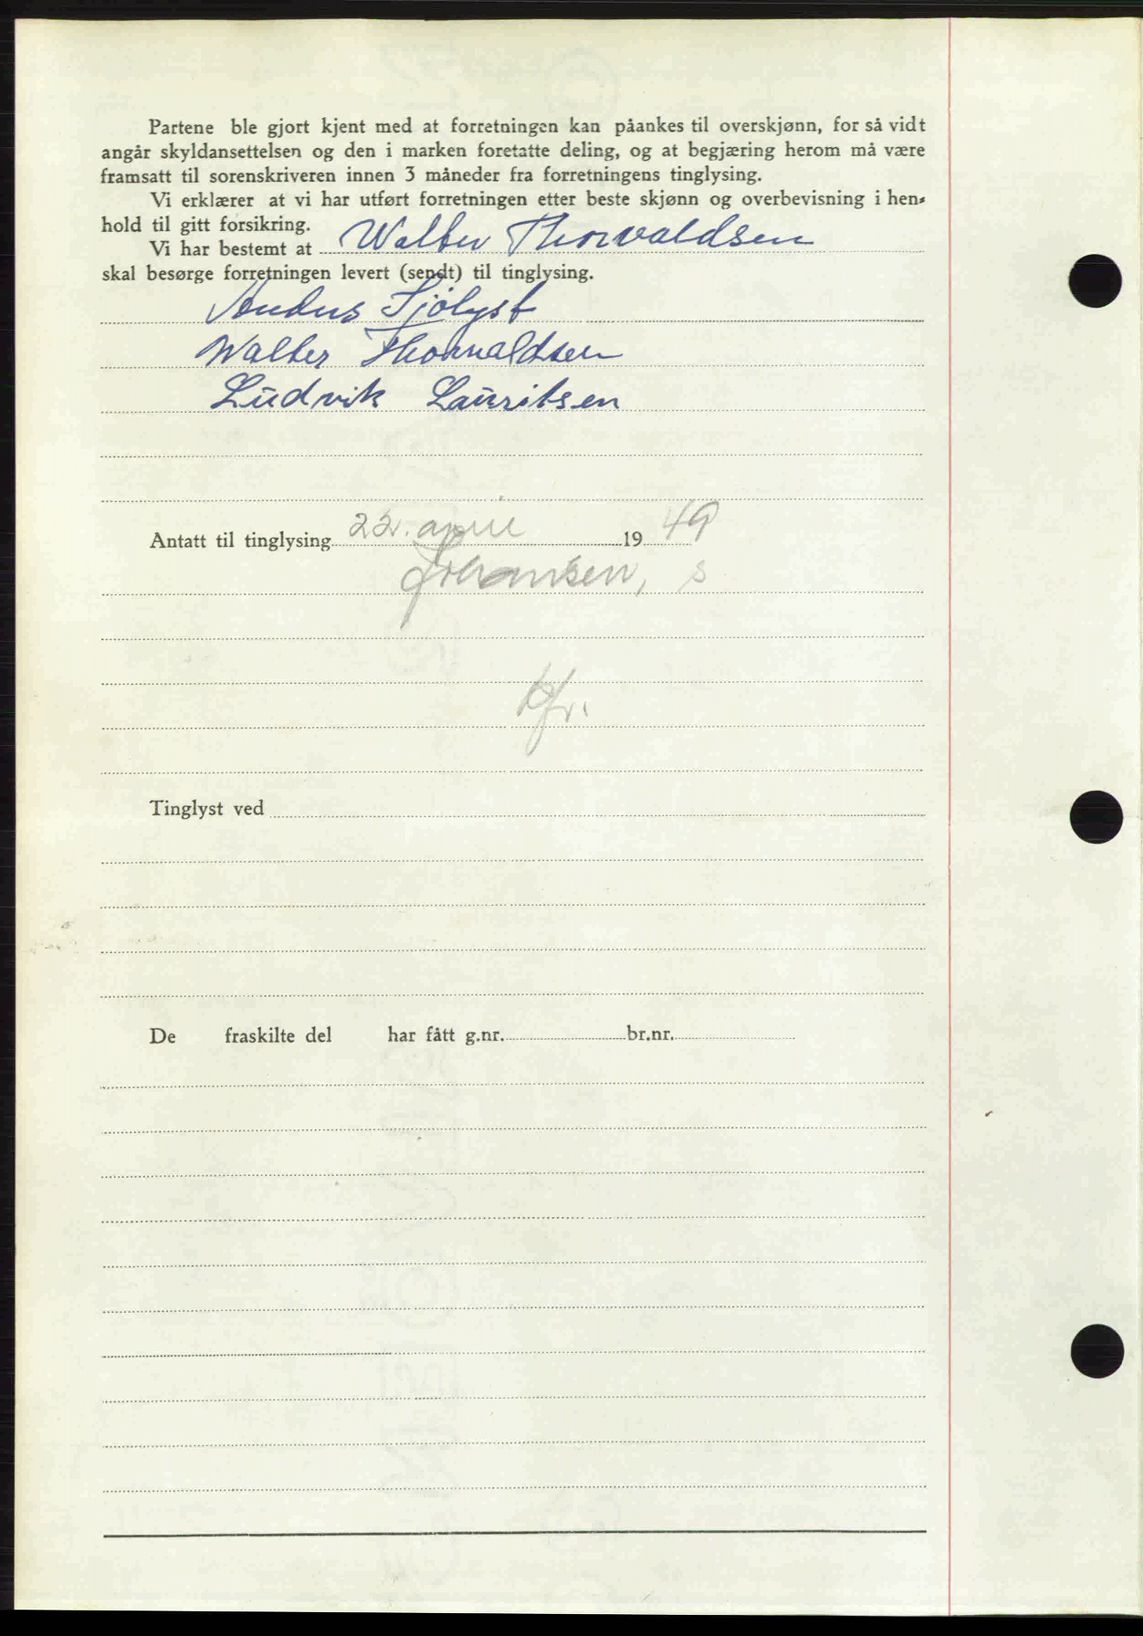 Partene ble gjort kjent med at forretningen kan påankes til overskjønn, for så vidt
angår skyldansettelsen og den i marken foretatte deling, og at begjæring herom må være
framsatt til sorenskriveren innen 3 måneder fra forretningens tinglysing.
Vi erklærer at vi har utført forretningen etter beste skjønn og overbevisning i hen-
hold til gitt forsikring.
Vi har bestemt at Walter Thorvaldsen
skal besørge forretningen levert (sendt) til tinglysing.
Sjølyst
Walter Thorvaldsen
Ludvik Lauritsen
Antatt til tinglysing 22. april 1949
Johansen, s
Tinglyst ved
De fraskilte del har fått g.nr. br.nr.